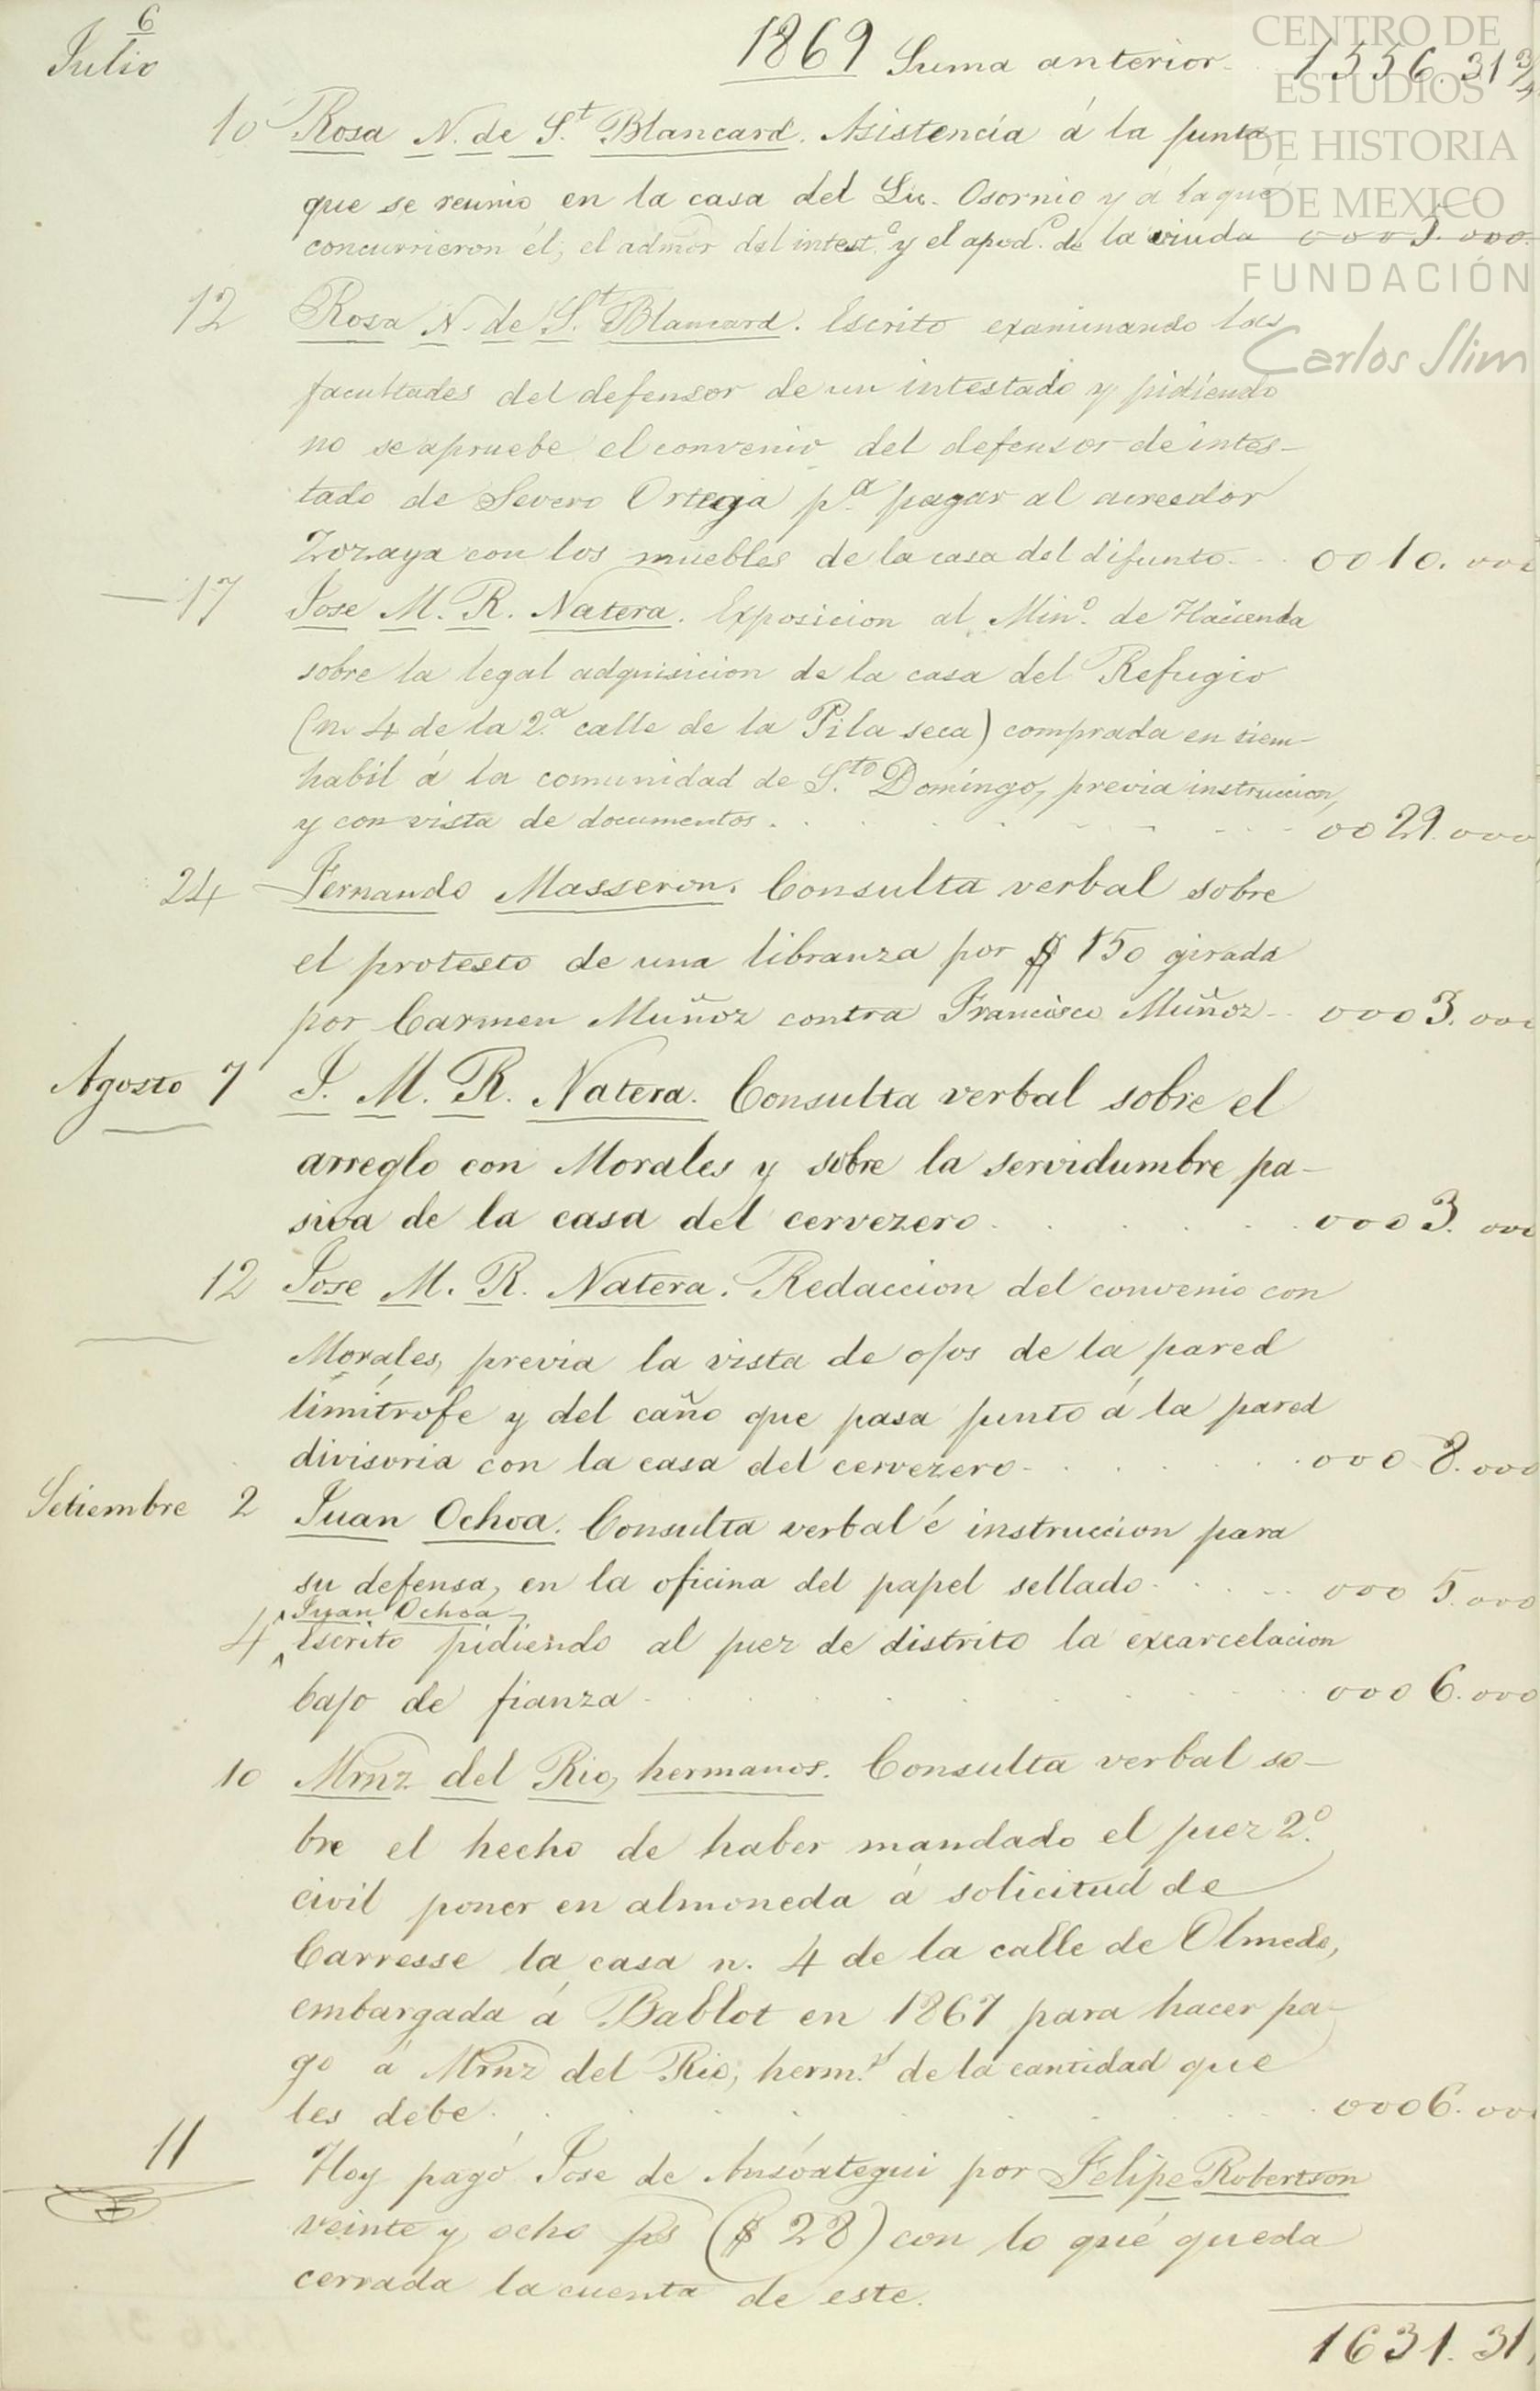 6
Julio
1869 Suma anterior. 1556.31 3/4
CENTRO DE
ESTUDIOS
DE HISTORIA
DE MEXICO
FUNDACIÓN
Carlos Slim
10 Rosa N. de S.t Blancard. Asistencia á la junta
que se reunio en la casa del Lic. Osornio y á la que
concurrieron él, el admor del intest.o y el apod.o de la viuda 0005.000.
12 Rosa N. de S.t Blancard. Escrito examinando las
facultades del defensor de un intestado y pidiendo
no se apruebe el convenio del defensor de intes-
tado de Severo Ortega p.a pagar al acreedor
Zozaya con los muebles de la casa del difunto. 0010.000
17 Jose M. R. Natera. Exposicion al Min.o de Hacienda
sobre la legal adquisicion de la casa del Refugio
(n. 4 de la 2.a calle de la Pila seca) comprada en tiem-
habil á la comunidad de S.to Domingo, previa instruccion,
y con vista de documentos. 0029.000
24 Fernando Masseron. Consulta verbal sobre
el protesto de una libranza por $ 150 girada
por Carmen Muñoz contra Francisco Muñoz 0003.000
Agosto 7 J. M. R. Natera. Consulta verbal sobre el
arreglo con Morales y sobre la servidumbre pa-
siva de la casa del cervezero. 0003.000
12 Jose M. R. Natera. Redaccion del convenio con
Morales, previa la vista de ojos de la pared
limítrofe y del caño que pasa junto á la pared
divisoria con la casa del cervezero. 0008.000
Setiembre 2 Juan Ochoa. Consulta verbal é instruccion para
su defensa, en la oficina del papel sellado. 0005.000
Juan Ochoa
4 Escrito pidiendo al juez de distrito la excarcelacion
bajo de fianza 0006.000
10 Mrnz del Rio, hermanos. Consulta verbal so-
bre el hecho de haber mandado el juez 2.o
civil poner en almoneda á solicitud de
Carresse la casa n. 4 de la calle de Olmedo,
embargada á Bablot en 1867 para hacer pa-
go á Mrnz del Rio, herm.s de la cantidad que
les debe. 0006.000
11 Hoy pagó Jose de Ansóategui por Felipe Robertson
veinte y ocho ps ($ 28) con lo que queda
cerrada la cuenta de este.
1631.31